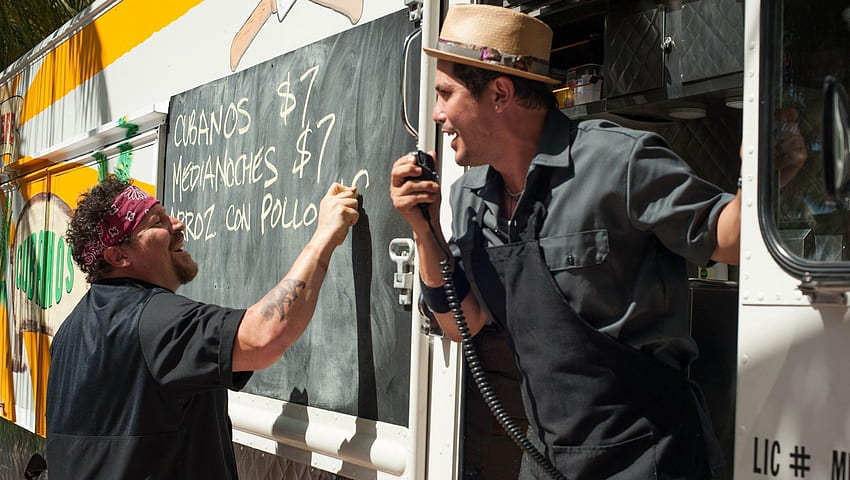 CUBANOS $7
MEDIANOCHES $7
ARROZ CON POLLO
CUBANOS
LIC #